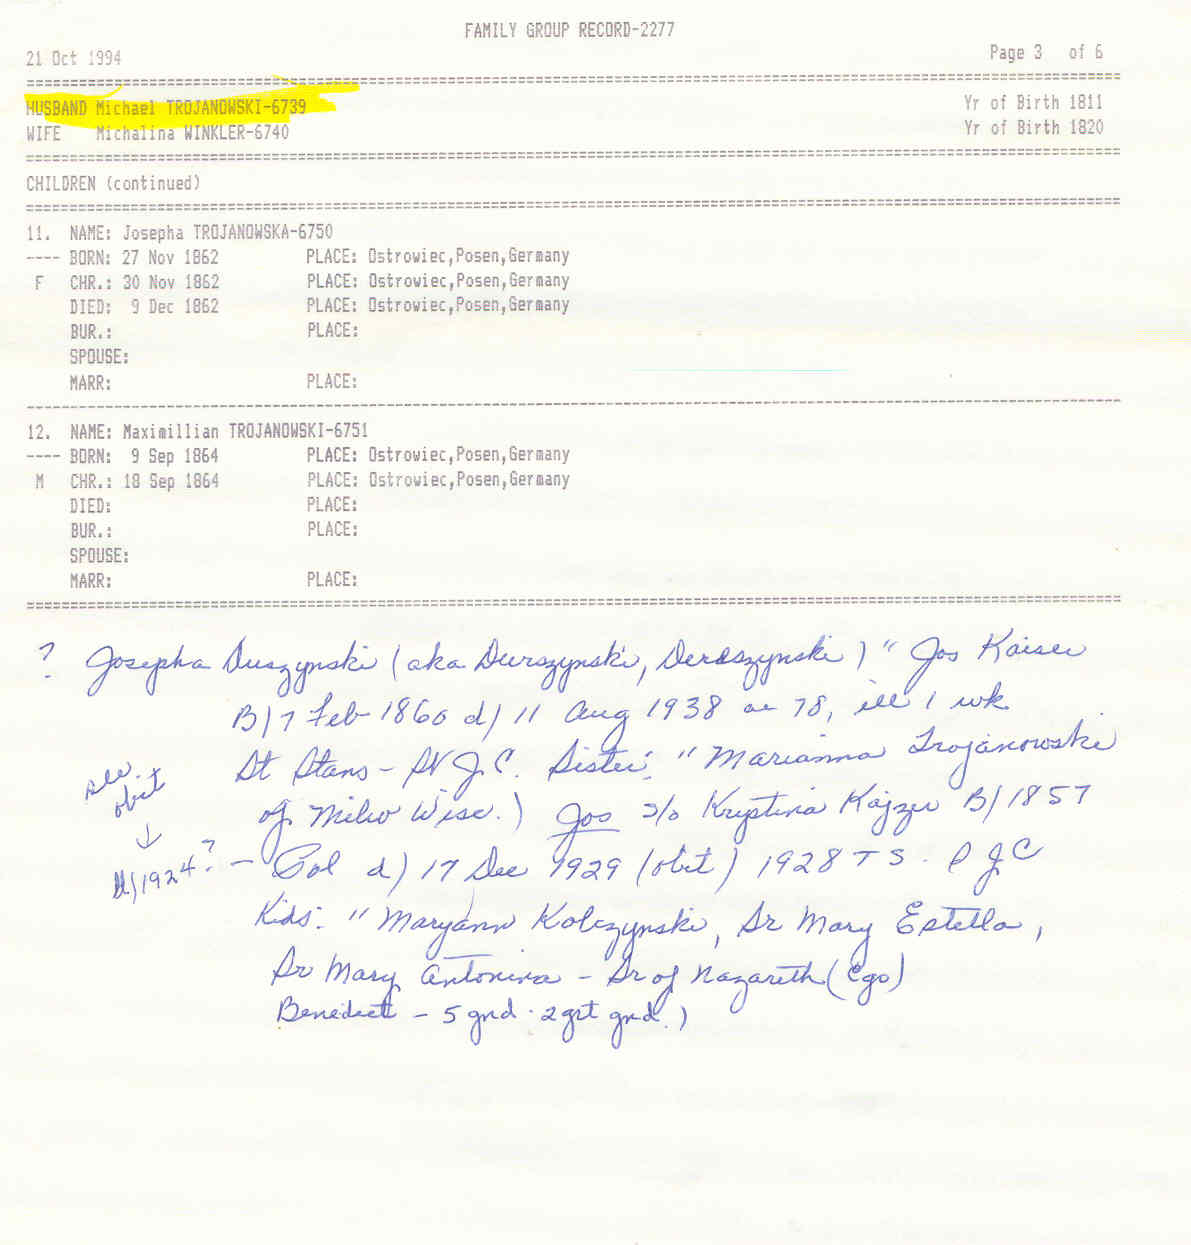 FAMILY GROUP RECORD-2277
21 Oct 1994 Page 3 of 6
HUSBAND Michael TROJANOWSKI-6739 Yr of Birth 1811
WIFE Michalina WINKLER-6740 Yr of Birth 1820
CHILDREN (continued)
11. NAME: Josepha TROJANOWSKA-6750
---- BORN: 27 Nov 1862 PLACE: Ostrowiec,Posen,Germany
F CHR.: 30 Nov 1862 PLACE: Ostrowiec,Posen,Germany
DIED: 9 Dec 1862 PLACE: Ostrowiec,Posen,Germany
BUR.: PLACE:
SPOUSE:
MARR: PLACE:
12. NAME: Maximillian TROJANOWSKI-6751
---- BORN: 9 Sep 1864 PLACE: Ostrowiec,Posen,Germany
M CHR.: 18 Sep 1864 PLACE: Ostrowiec,Posen,Germany
DIED: PLACE:
BUR.: PLACE:
SPOUSE:
MARR: PLACE:
? Josepha Duszynski (aka Durszynski, Deraszynski) " Jos Kaiser
B) 7 Feb 1860 d) 11 Aug 1938 ae 78, ill 1 wk
St Stans - J.C. Sister: "Marianna Trojanowski
of Milw Wisc.) Jos s/o Krystina Kajzer B) 1857
see obit
↓
d) 1924? - Pol d) 17 Dec 1929 (obit) 1928 TS. P J C
Kids: "Maryann Kolczynski, Sr Mary Estella,
Sr Mary Antonina - Sr of Nazareth (Cgo)
Benedict - 5 gnd. 2 grt gnd.)